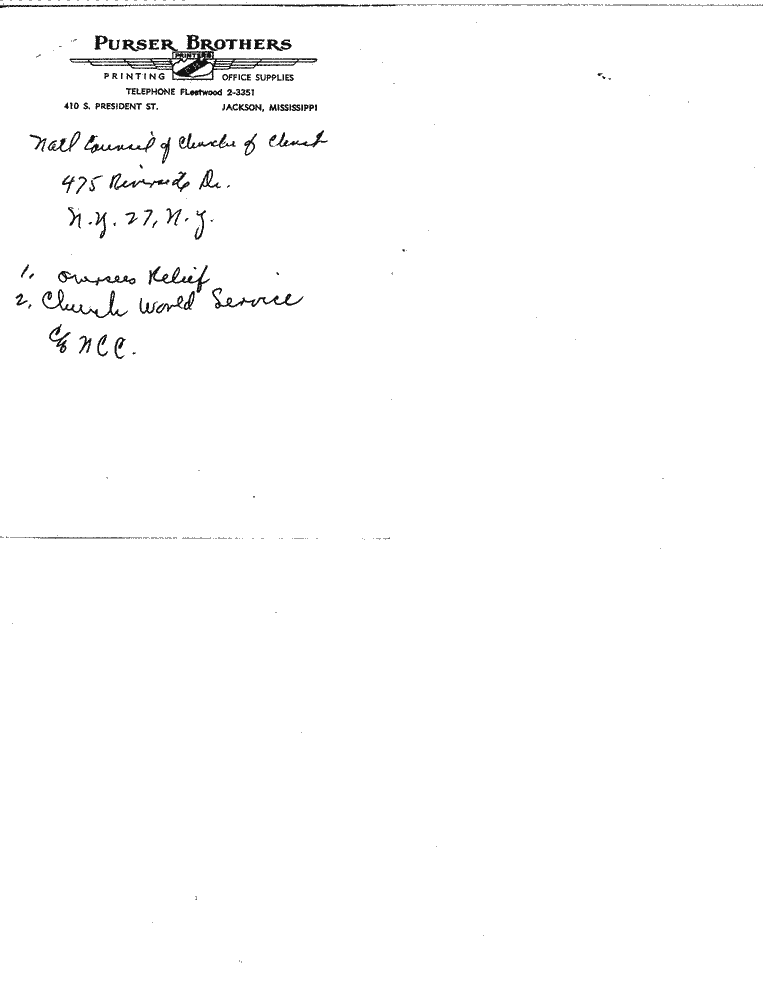 PURSER BROTHERS
PRINTERS
PRINTING OFFICE SUPPLIES
TELEPHONE FLeetwood 2-3351
410 S. PRESIDENT ST. JACKSON, MISSISSIPPI
Natl Council of Churche of Christ
475 Riverside Dr.
N.Y. 27, N.Y.
1. Oversees Relief
2. Church World Service
c/o NCC.